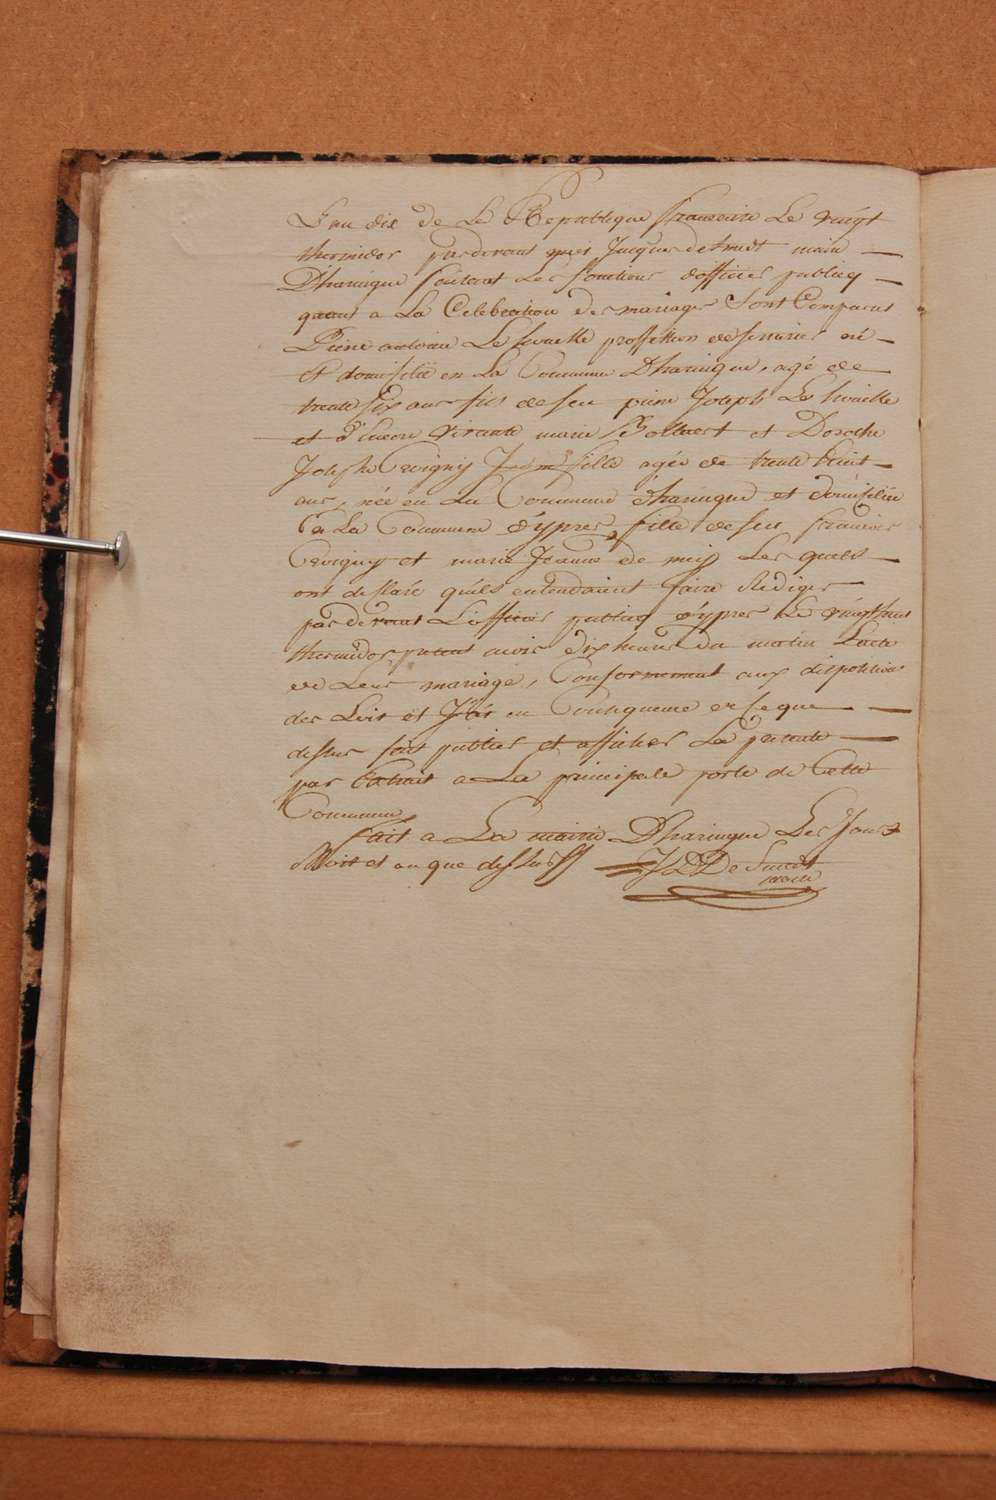 L'an dix de Le Republique francaise Le vingt
thermidor pardevant Jacques de Smedt maire
D'haringue foutant Les fonctions d'officier publicq
quant a La Celebration des mariages Sont Comparus
Pierre antoine Le proffession de né
et domisilié en La Commune D'haringue, agé de
trente six ans fils de feu pierre Joseph Le
et d'Encore vivante marie Bollaert et Dorothe
Josephe Crevigny fille agée de trente huit
ans, née en La Commune d'haringue et domisiliée
a La Commune d'ypres, fille de feu francois
Crevigny et marie Jeanne de Les quels
ont déslaré qu'ils entendoient faire Rediger
pardevant L'officier publicq d'ypres Le vingt huit
thermidor a dix heures du matin L'acte
de Leur mariage, Conformement aux dispositions
des Loix et J'ai en Consequence de se que
dessus fait publier et afficher La presente
par Extrait a La principale porte de Cette
Commune
fait a La mairie D'haringue Les Jour
Mois et an que dessus
De Smedt
maire